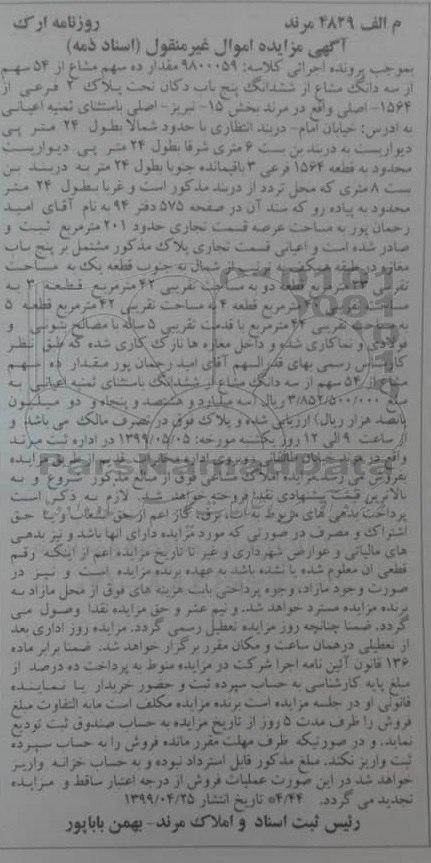 م الف ۴۸۲۹ مرند روزنامه ارک
آگهی مزایده اموال غیرمنقول (اسناد ذمه)
بموجب پرونده اجرائی کلاسه: ۹۸۰۰۰۵۹ مقدار ده سهم مشاع از ۵۴ سهم
از سه دانگ مشاع از ششدانگ پنج باب دکان تحت پلاک ۲ فرعی از
۱۵۶۴- اصلی واقع در مرند بخش ۱۵- تبریز- اصلی باستثنای ثمنیه اعیانی
به ادرس: خیابان امام- دربند انتظاری با حدود شمالا بطول ۲۴ متر پی
دیواریست به دربند بن بست ۶ متری شرقا بطول ۲۴ متر پی دیواریست
محدود به قطعه ۱۵۶۴ فرعی ۳ باقیمانده جنوبا بطول ۲۴ متر به دربند بن
بست ۸ متری که محل تردد از دربند مذکور است و غربا بطول ۲۴ متر
محدود به پیاده رو که سند آن در صفحه ۵۷۵ دفتر ۹۴ به نام آقای امید
رحمان پور به مساحت عرصه قسمت تجاری حدود ۲۰۱ مترمربع ثبت و
صادر شده است و اعیانی قسمت تجاری پلاک مذکور مشتمل بر پنج باب
مغازه دو طبقه میباشد به ترتیب از شمال به جنوب قطعه یک به مساحت
تقریبی ۳۳ مترمربع قطعه دو به مساحت تقریبی ۴۲ مترمربع قطعه ۳ به
مساحت تقریبی ۴۰ مترمربع قطعه ۴ به مساحت تقریبی ۴۲ مترمربع قطعه ۵
به مساحت تقریبی ۴۴ مترمربع با قدمت تقریبی ۵ ساله با مصالح بتونی و
فولادی و نماکاری شده و داخل مغازه ها نازک کاری شده که طبق نظر
کارشناس رسمی بهای قدرالسهم آقای امید رحمان پور مقدار ده سهم
مشاع از ۵۴ سهم از سه دانگ مشاع از ششدانگ باستثنای ثمنیه اعیانی به
مبلغ ۳/۸۵۲/۵۰۰/۰۰۰ ریال (سه میلیارد و هشتصد و پنجاه و دو میلیون
پانصد هزار ریال) ارزیابی شده و پلاک فوق در تصرف مالک می باشد و
از ساعت ۹ الی ۱۲ روز یکشنبه مورخه: ۱۳۹۹/۰۵/۰۵ در اداره ثبت مرند
واقع در مرند خیابان طالقانی روبروی اداره مخابرات قدیم از طریق مزایده
بفروش می رسد.مزایده املاک مشاعی فوق از مبالغ مذکور شروع و به
بالاترین قیمت پیشنهادی نقدا فروخته خواهد شد. لازم به ذکر است
پرداخت بدهی های مربوط به آب، برق، گاز اعم از حق انشعاب و یا حق
اشتراک و مصرف در صورتی که مورد مزایده دارای آنها باشد و نیز بدهی
های مالیاتی و عوارض شهرداری و غیر تا تاریخ مزایده اعم از اینکه رقم
قطعی ان معلوم شده یا نشده باشد به عهده برنده مزایده است و نیز در
صورت وجود مازاد، وجوه پرداختی بابت هزینه های فوق از محل مازاد به
برنده مزایده مسترد خواهد شد. و نیم عشر و حق مزایده نقدا وصول می
گردد. ضمنا چنانچه روز مزایده تعطیل رسمی گردد. مزایده روز اداری بعد
از تعطیلی درهمان ساعت و مکان مقرر برگزار خواهد شد. ضمنا برابر ماده
۱۳۶ قانون آئین نامه اجرا شرکت در مزایده منوط به پرداخت ده درصد از
مبلغ پایه کارشناسی به حساب سپرده ثبت و حضور خریدار یا نماینده
قانونی او در جلسه مزایده است برنده مزایده مکلف است مابه التفاوت مبلغ
فروش را ظرف مدت ۵ روز از تاریخ مزایده به حساب صندوق ثبت تودیع
نماید. و در صورتیکه ظرف مهلت مقرر مانده فروش را به حساب سپرده
ثبت واریز نکند. مبلغ مذکور قابل استرداد نبوده و به حساب خزانه واریز
خواهد شد در این صورت عملیات فروش از درجه اعتبار ساقط و مزایده
تجدید می گردد. ۴/۴۴* تاریخ انتشار ۱۳۹۹/۰۴/۲۵
رئیس ثبت اسناد و املاک مرند- بهمن باباپور
ParsNamadData